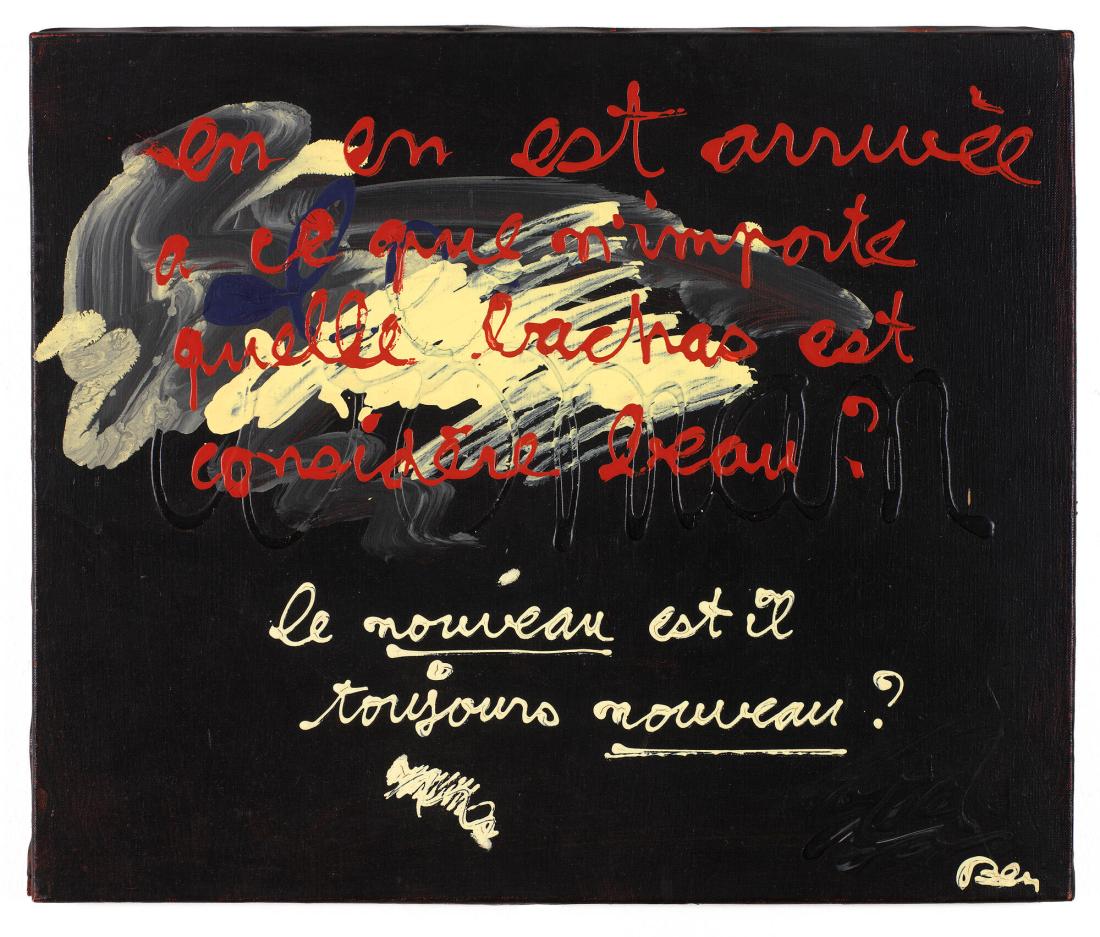 en en est arrivée
a ce que n'importe
quelle bachas est
considère beau ?
le nouveau est il
toujours nouveau ?
Ben